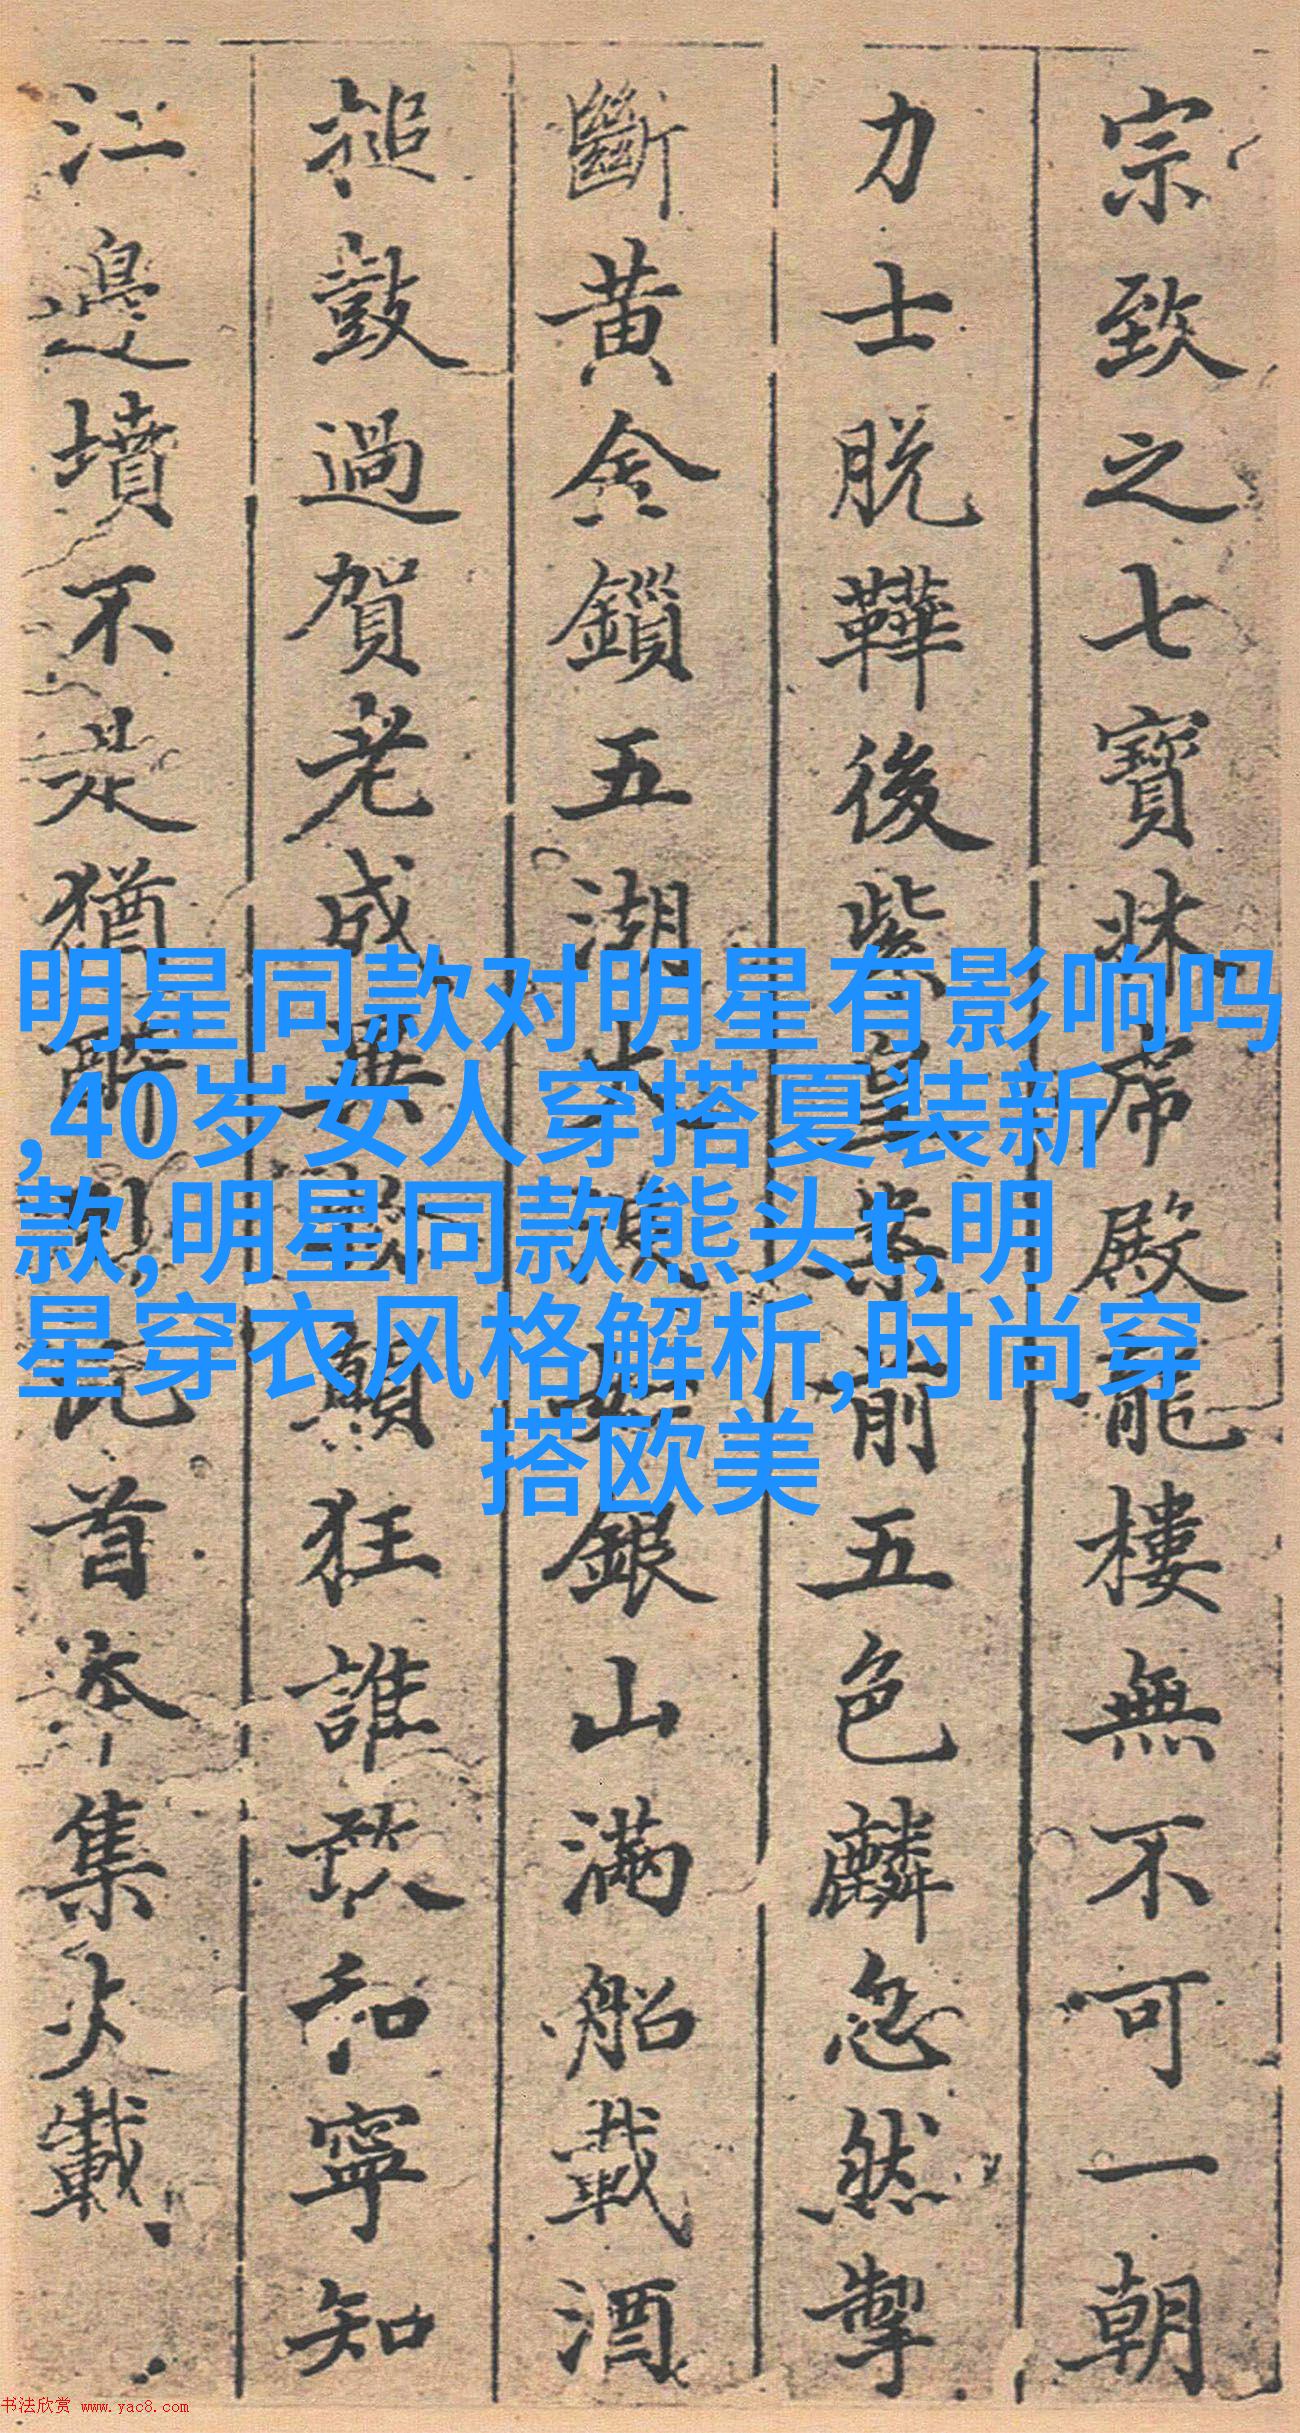 宗致之七寶牀席殿龍樓無不可一朝
力士脫鞾後紫皇案前五色麟忽然掣
斷黃金鎖五湖大浪如銀山滿船載酒
搥鼓過賀老成異物顛狂誰敢和寧知
江邊墳不是猶醉卧此首本集火載
明星同款对明星有影响吗
,40岁女人穿搭夏装新
款,明星同款熊头t,明
星穿衣风格解析,时尚穿
搭欧美
书法欣赏 www.yac8.com